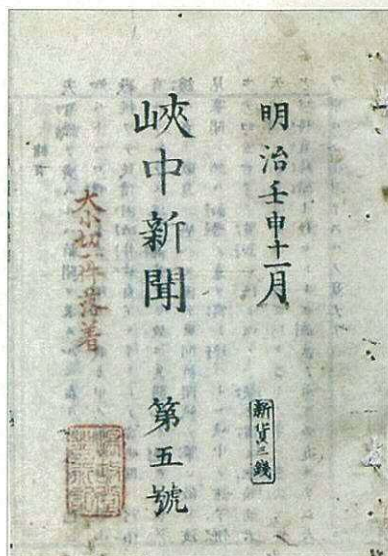 明治壬申十一月
新貨三錢
峽中新聞 第五號
大小切一件落着